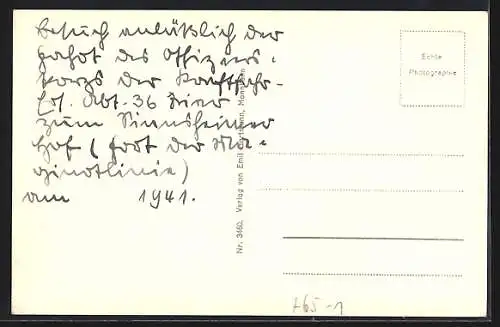 Besuch anläßlich der
Fahrt des Offiziers-
korps der Kraftfahr-
Ers. Abt. 36 Trier
zum Simsheimer
Hof (Fort der Ma-
ginotlinie)
am 1941.
Echte
Photographie
Nr. 3460. Verlag von Emil
465-1